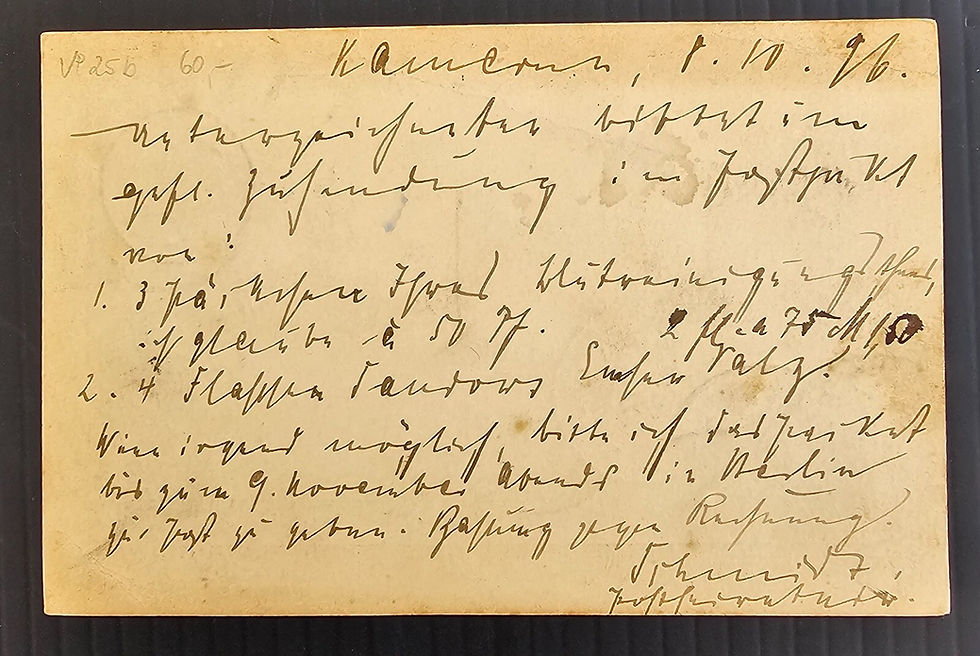 VP 25b 60,-
Kamerun, 8.10.96.
Unterzeichneter bittet um
gefl. Zusendung im Postpaket
von:
1. 3 Päckchen Ihres Blutreinigungsthees,
ich glaube à 50 Pf. 2 fl. a 75 M 1,50
2. 4 Flaschen Sandows Emser Salz.
Wenn irgend möglich, bitte ich das Packet
bis zum 9. November Abends in Berlin
zur Post zu geben. Zahlung gegen Rechnung.
Schmidt,
Postsekretär.